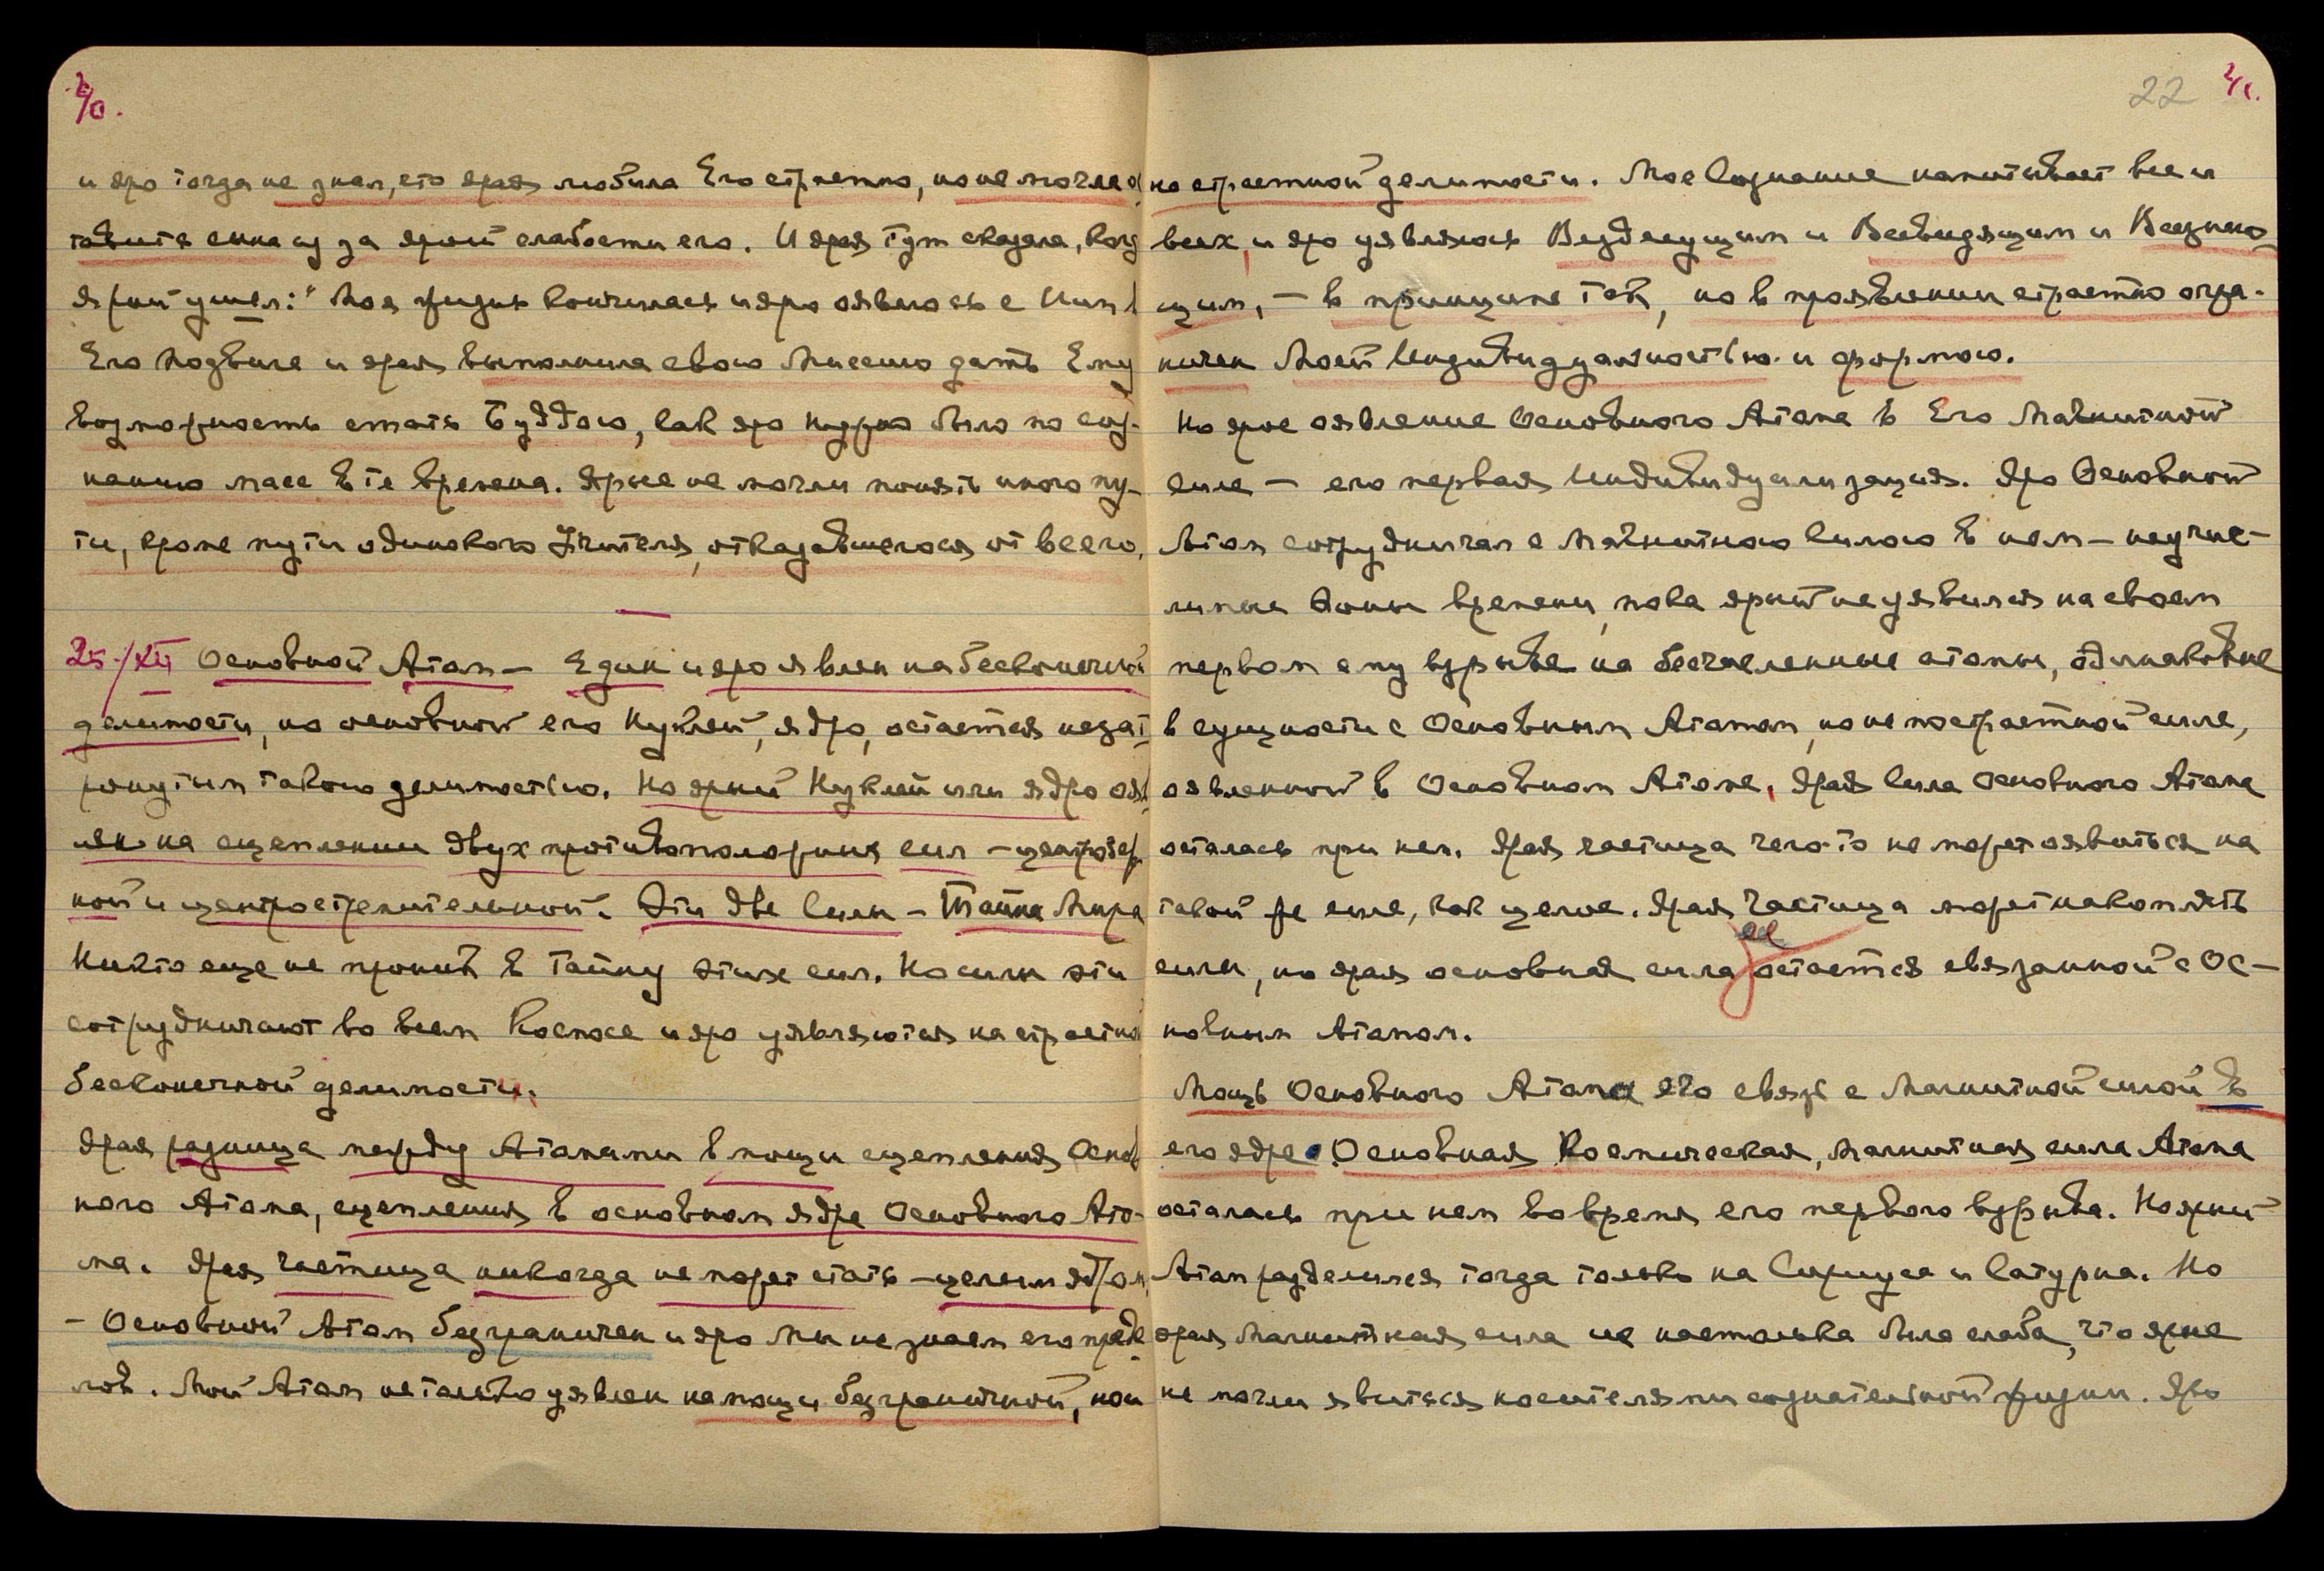 40.
и яро тогда не знал, что ярая любила Его страстно, но не могла ос
тавить сына из за ярой слабости его. И ярая тут сказала, когд
ярый ушел: " Моя жизнь кончилась и яро оявлюсь с Ним в
Его Подвиге и ярая выполнила свою Миссию дать Ему
возможность стать Буддою, как яро нужно было по соз-
нанию масс в те времена. Ярые не могли понять иного пу-
ти, кроме пути одинокого Учителя, отказавшегося от всего.
25/XII Основной Атом – Един и яро явлен на бесконечной
делимости, но основной его Нуклей, ядро, остается незат
ронутым такою делимостью. Но ярый Нуклей или ядро ояв
лен на сцеплении двух противоположных сил – центробеж
ной и центростремительной. Эти две Силы – Тайна Мира
Никто еще не проник в Тайну этих сил. Но силы эти
сотрудничают во всем Космосе и яро уявляются на страстной
бесконечной делимости.
Ярая разница между Атомами в мощи сцепления Основ
ного Атома, сцепления в основном ядре Основного Ато-
ма. Ярая частица никогда не может стать – целым ядром,
– Основной Атом безграничен и яро мы не знаем его преде
лов. Мой Атом не только уявлен на мощи безграничной, но и
22 41.
на страстной делимости. Мое Сознание напитывает все и
всех, и яро уявляюсь Вездесущим и Всевидящим и Всезнаю-
щим, – в принципе так, но в проявлении страстно огра-
ничен Моей Индивидуальностью и формою.
Но ярое оявление Основного Атома в Его Магнитной
силе – его первая Индивидуализация. Яро Основной
Атом сотрудничал с Магнитною Силою в нем – неучис-
лимые Эоны времени, пока ярый не уявился на своем
первом ему взрыве на бесчисленные атомы, одинаковые
в сущности с Основным Атомом, но не по страстной силе,
оявленной в Основном Атоме. Ярая Сила Основного Атома
осталась при нем. Ярая частица чего-то не может оявиться на
такой же силе, как целое. Ярая частица может накоплять
силы, но ярая основная сила ее остается связанной с Ос-
новным Атомом.
Мощь Основного Атома его связь с Магнитной силой в
его ядре. Основная Космическая, Магнитная сила Атома
осталась при нем во время его первого взрыва. Но ярый
Атом разделился тогда только на Сириуса и Сатурна. Но
ярая Магнитная сила не настолько была слаба, что ярые
не могли явиться носителями сознательной жизни. Яро